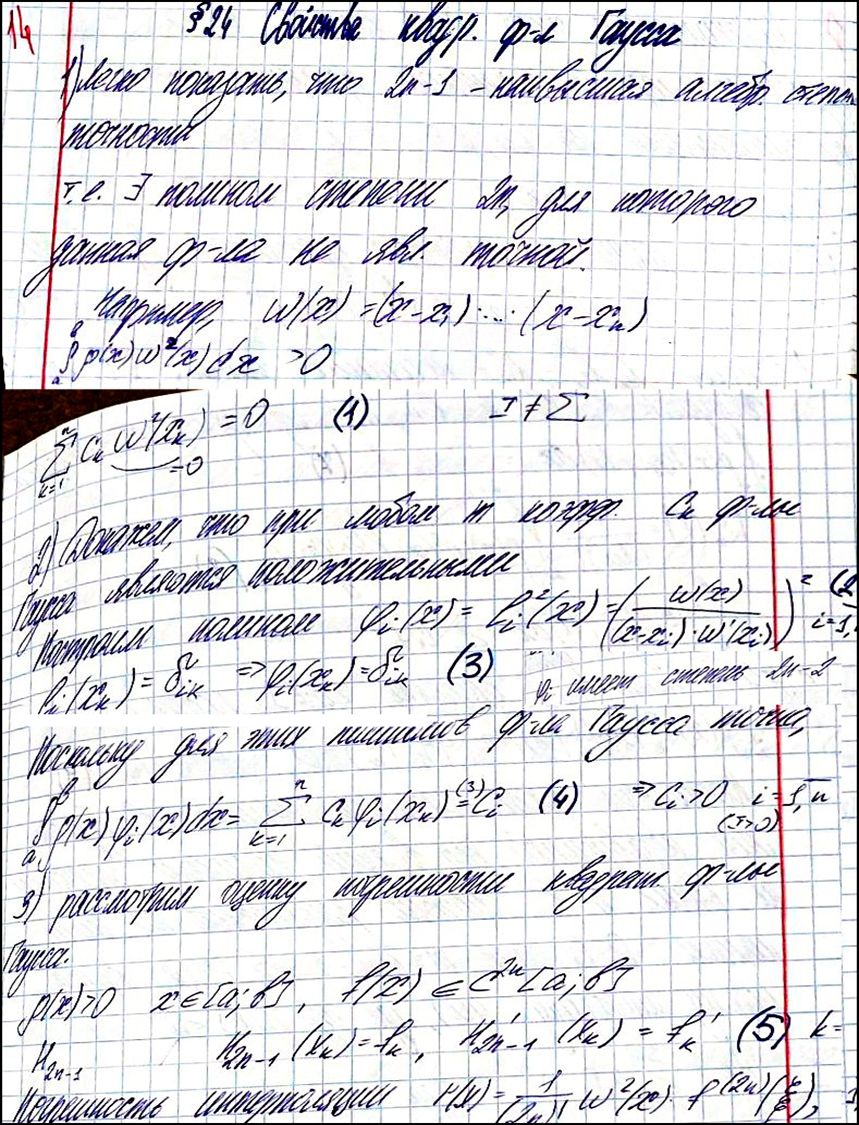 14
§24 Свойства квадр. ф-л Гаусса
1) Легко показать, что 2n-1 - наивысшая алгебр. степень
точности
т.е. ∃ полином степени 2n, для которого
данная ф-ла не явл. точной.
Например, ω(x) = (x-x₁)·...·(x-xₙ)
∫ₐᵇ ρ(x) ω²(x) dx > 0
∑ₖ₌₁ⁿ Cₖ ω²(xₖ) = 0 (1) I ≠ ∑
=0
2) Докажем, что при любом n коэфф. Cₖ ф-лы
Гаусса являются положительными
Построим полином φᵢ(x) = lᵢ²(x) = (ω(x)/((x-xᵢ)·ω'(xᵢ)))² (2)
i=1,
lᵢ(xₖ) = δᵢₖ ⇒ φᵢ(xₖ) = δᵢₖ (3) φᵢ имеет степень 2n-2
Поскольку для этих полиномов ф-ла Гаусса точна,
∫ₐᵇ ρ(x) φᵢ(x) dx = ∑ₖ₌₁ⁿ Cₖ φᵢ(xₖ) =⁽³⁾ Cᵢ (4) ⇒ Cᵢ > 0 i = 1,n
(I>0)
3) рассмотрим оценку погрешности квадрат. ф-лы
Гаусса.
ρ(x) > 0 x ∈ [a; b], f(x) ∈ C²ⁿ [a; b]
H₂ₙ₋₁ H₂ₙ₋₁(xₖ) = fₖ, H'₂ₙ₋₁(xₖ) = fₖ' (5) k=
Погрешность интерполяции r(x) = 1/(2n)! ω²(x) · f⁽²ⁿ⁾(ξ),